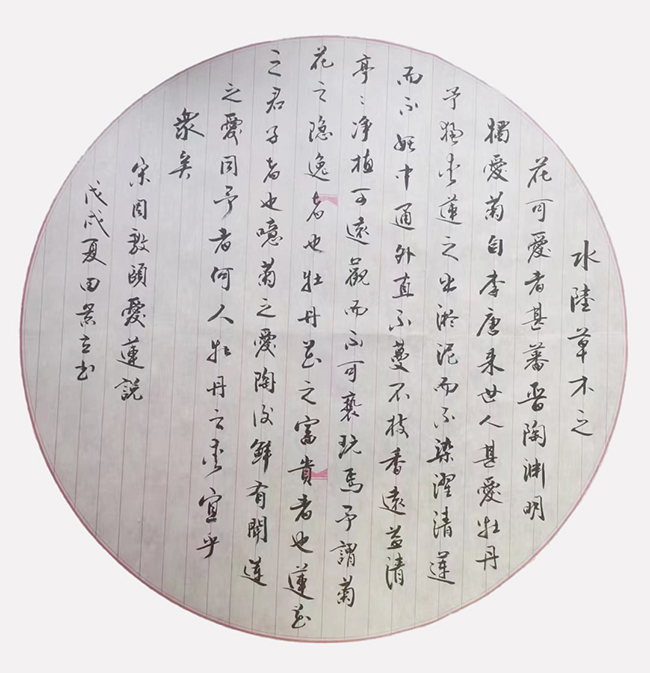 水陸草木之
花可愛者甚蕃晉陶淵明
獨愛菊自李唐来世人甚愛牡丹
予獨愛蓮之出淤泥而不染濯清蓮
而不妖中通外直不蔓不枝香遠益清
亭〻净植可遠觀而不可褻玩焉予謂菊
花之隐逸者也牡丹花之富貴者也蓮花
之君子者也噫菊之愛陶後鮮有聞蓮
之愛同予者何人牡丹之愛宜乎
衆矣
宋周敦頤愛蓮説
戊戌夏田景立书